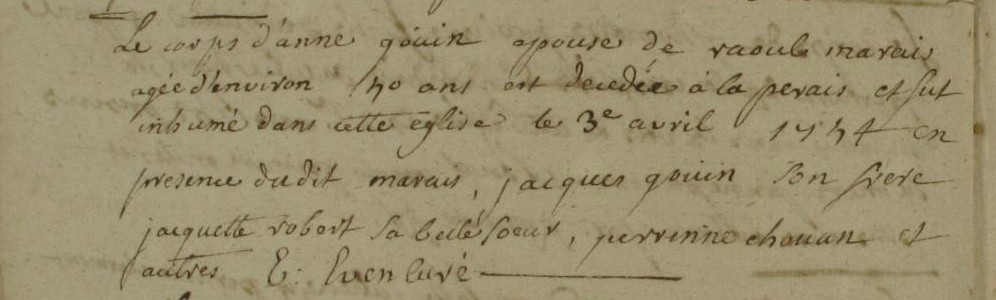 Le corps d'anne goüin epouse de raoul marais
agée d'environ 50 ans est decedée à la perais et fut
inhumé dans cette église le 3e avril 1754 en
presence dudit marais, jacques goüin son frere
jacquette robert sa belle soeur, perrinne chouan et
autres E: Even curé